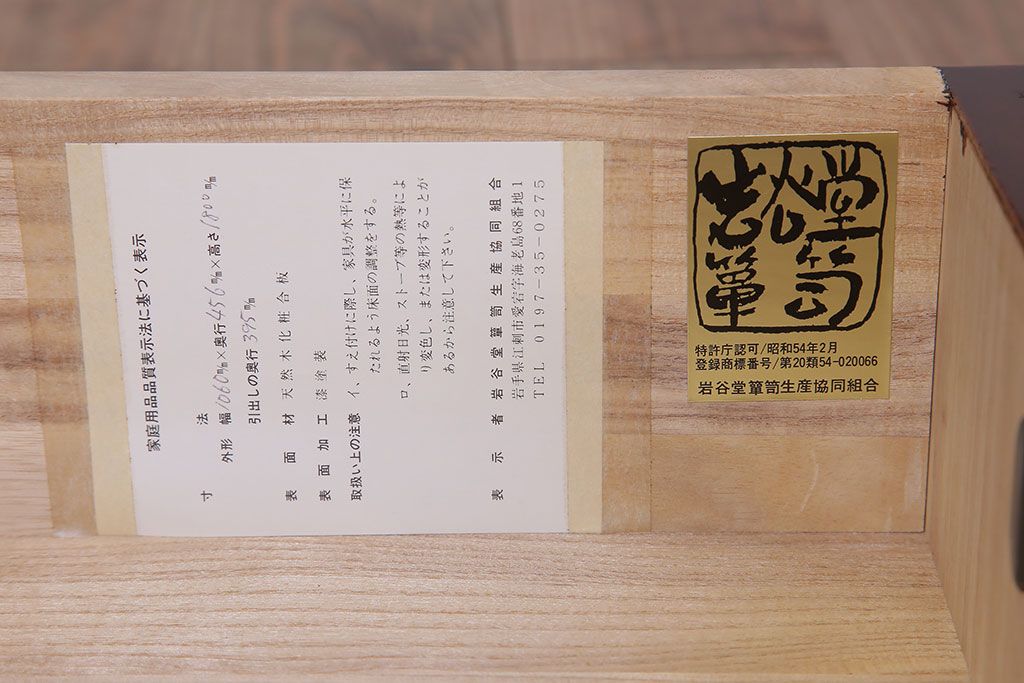 家庭用品品質表示法に基づく表示
寸法
外形 幅1060㎜×奥行456㎜×高さ1800㎜
引出しの奥行395㎜
表面材 天然木化粧合板
表面加工 漆塗装
取扱い上の注意 イ、すえ付けに際し、家具が水平に保
たれるよう床面の調整をする。
ロ、直射日光、ストーブ等の熱等によ
り変色し、または変形することが
あるから注意して下さい。
表示者 岩谷堂簞笥生産協同組合
岩手県江刺市愛宕字海老島68番地1
TEL 0197−35−0275
岩谷堂
簞笥
特許庁認可/昭和54年2月
登録商標番号/第20類54-020066
岩谷堂簞笥生産協同組合